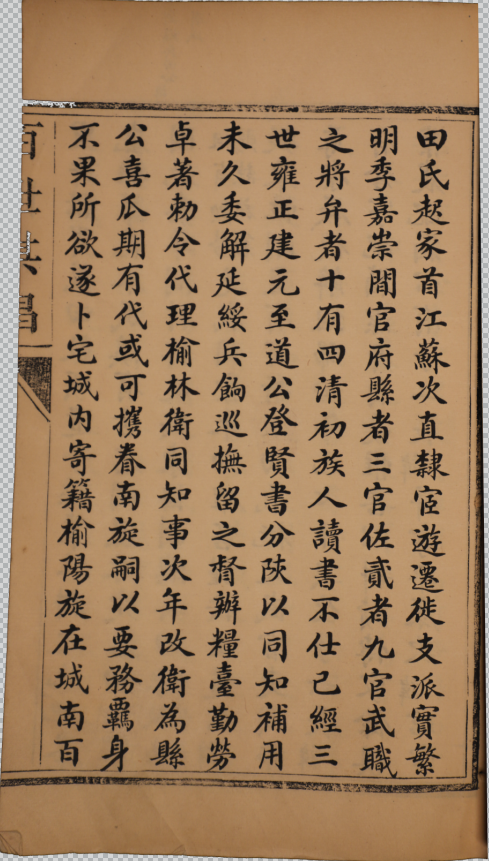 田氏起家首江蘇次直隸宦遊遷徙支派實繁
明季嘉崇間官府縣者三官佐貳者九官武職
之將弁者十有四清初族人讀書不仕已經三
世雍正建元至道公登賢書分陝以同知補用
未久委解延綏兵餉巡撫留之督辦糧臺勤勞
卓著勅令代理榆林衛同知事次年改衛為縣
公喜瓜期有代或可攜眷南旋嗣以要務羈身
不果所欲遂卜宅城内寄籍榆陽旋在城南百
百世其昌